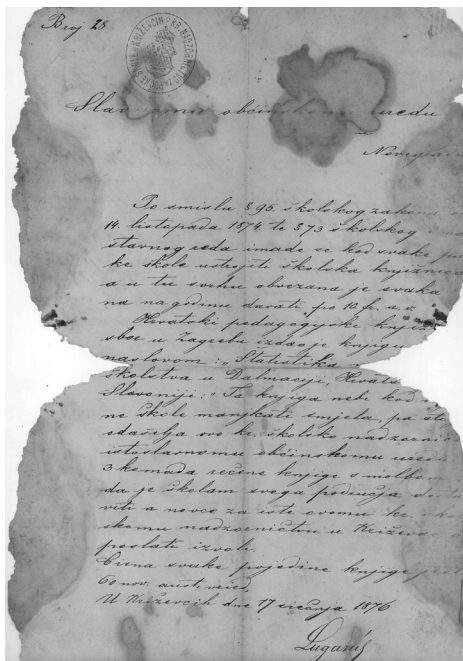 Broj 28
KR. NADZORNIČTVO ŠKOLE U KRIŽEVCIH
Slavnomu obćinskomu uredu
Novigrad
Po smislu §. 95. školskog zakona
14. listopada 1874 te §. 73 školskog
stavnog reda imade se kod svake
ke škole ustrojiti školska knjižnica
a u tu svrhu obvezana je svaka
na na godinu davati po 10. fr. a. v.
Hrvatski pedagogijski književni
sbor u Zagrebu izdao je knjigu
naslovom: „Statistika
školstva u Dalmaciji, Hrvatskoj
Slavoniji:" Ta knjiga nebi kod
ne škole manjkati smjela, pa
sdašilja ovo kr. školsko nadzornič
istoslavnomu obćinskomu uredu
3 komada rečene knjige s molbom
da je školam svoga područja
viti a novce za iste ovomu kr.
skomu nadzorničtvu u Križeve
poslati izvoli.
Ciena svake pojedine knjige je
60 nov. aust. vried.
U Križevcih dne 17 siečnja 1876